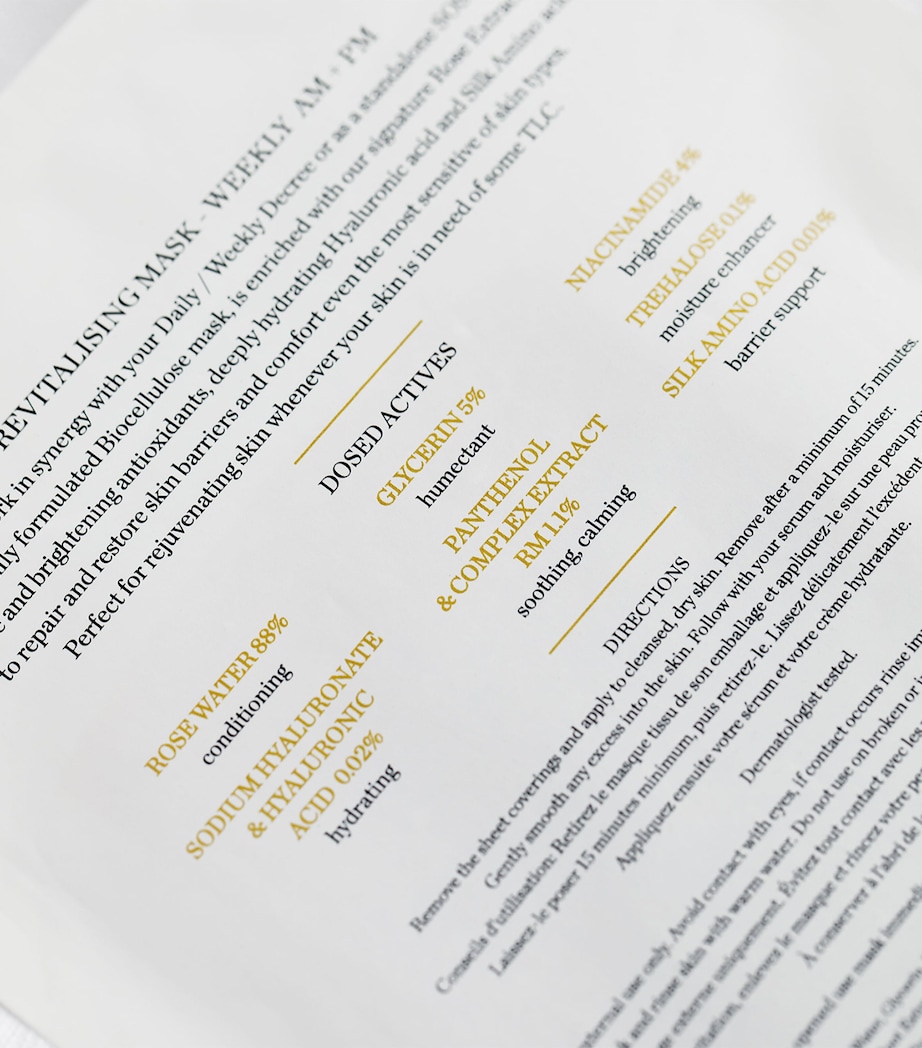 REVITALISING MASK - WEEKLY AM + PM
in synergy with your Daily / Weekly Decree or as a standalone
formulated Biocellulose mask, is enriched with our signature Rose
and brightening antioxidants, deeply hydrating Hyaluronic acid and Silk Amino
to repair and restore skin barriers and comfort even the most sensitive of skin types.
Perfect for rejuvenating skin whenever your skin is in need of some TLC.
DOSED ACTIVES
ROSE WATER 88%
conditioning
SODIUM HYALURONATE
& HYALURONIC
ACID 0.02%
hydrating
GLYCERIN 5%
humectant
PANTHENOL
& COMPLEX EXTRACT
RM 1.1%
soothing, calming
NIACINAMIDE 4%
brightening
TREHALOSE 0.1%
moisture enhancer
SILK AMINO ACID 0.01%
barrier support
DIRECTIONS
Remove the sheet coverings and apply to cleansed, dry skin. Remove after a minimum of 15 minutes.
Gently smooth any excess into the skin. Follow with your serum and moisturiser.
Conseils d'utilisation: Retirez le masque tissu de son emballage et appliquez-le sur une peau
Laissez-le poser 15 minutes minimum, puis retirez-le. Lissez délicatement l'excédent
Appliquez ensuite votre sérum et votre crème hydratante.
Dermatologist tested.
use only. Avoid contact with eyes, if contact occurs rinse
and rinse skin with warm water. Do not use on broken or
externe uniquement. Évitez tout contact avec les
enlevez le masque et rincez votre
À conserver à l'abri
use mask